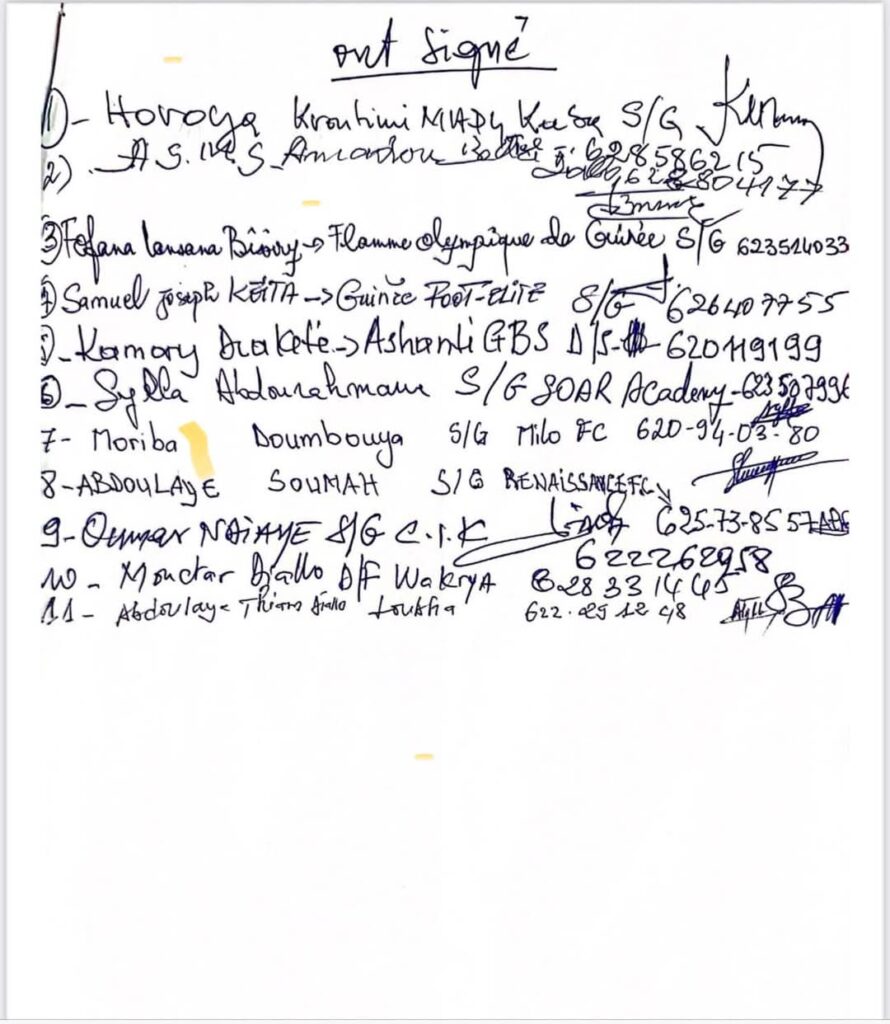 ont signé
1)- Horoya S/G
2). A.S. Amadou 628586215
628804177
3) Fofana Lansana → Flamme olympique de Guinée S/G 623514033
4) Samuel Joseph KEITA → Guinée FOOT-ELITE S/G 626407755
5)_ Kamory → Ashanti GBS D/S- 620119199
6)_ Sylla Abdourahmane S/G SOAR Academy-623507996
7- Moriba Doumbouya S/G Milo FC 620-94-03-80
8-ABDOULAYE SOUMAH S/G RENAISSANCE FC
9-Oumar NDIAYE S/G C.I.K 625-73-85 57
622262958
10 - Mouctar Djallo Wakrya 628 33 14 45
11 - Abdoulaye Diallo 622.25 12 48